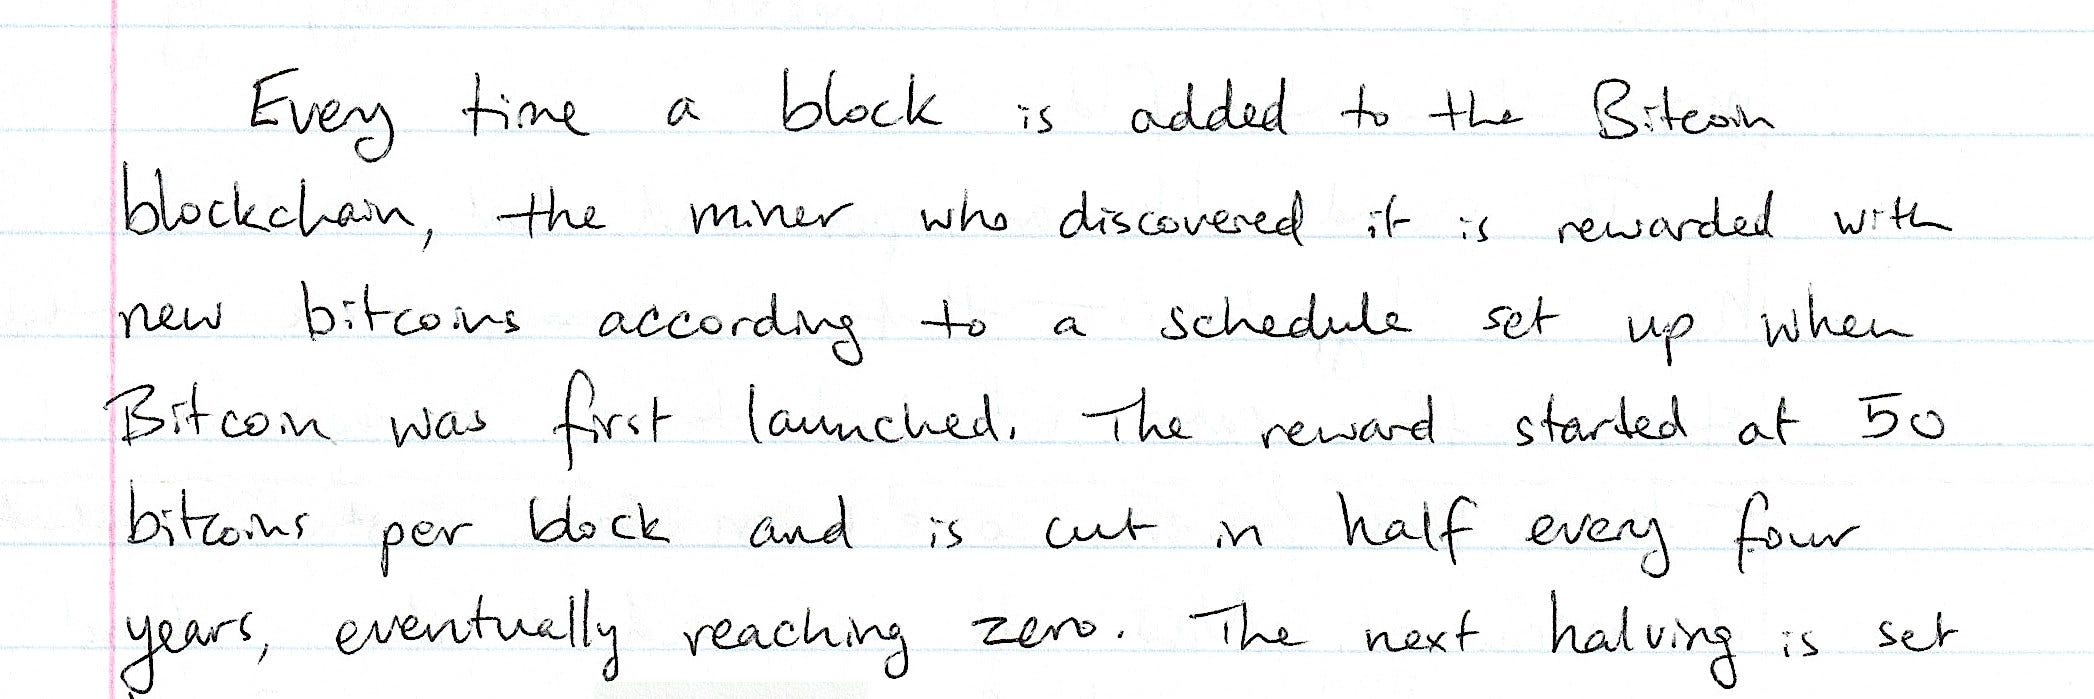 Every time a block is added to the Bitcoin
blockchain, the miner who discovered it is rewarded with
new bitcoins according to a schedule set up when
Bitcoin was first launched. The reward started at 50
bitcoins per block and is cut in half every four
years, eventually reaching zero. The next halving is set